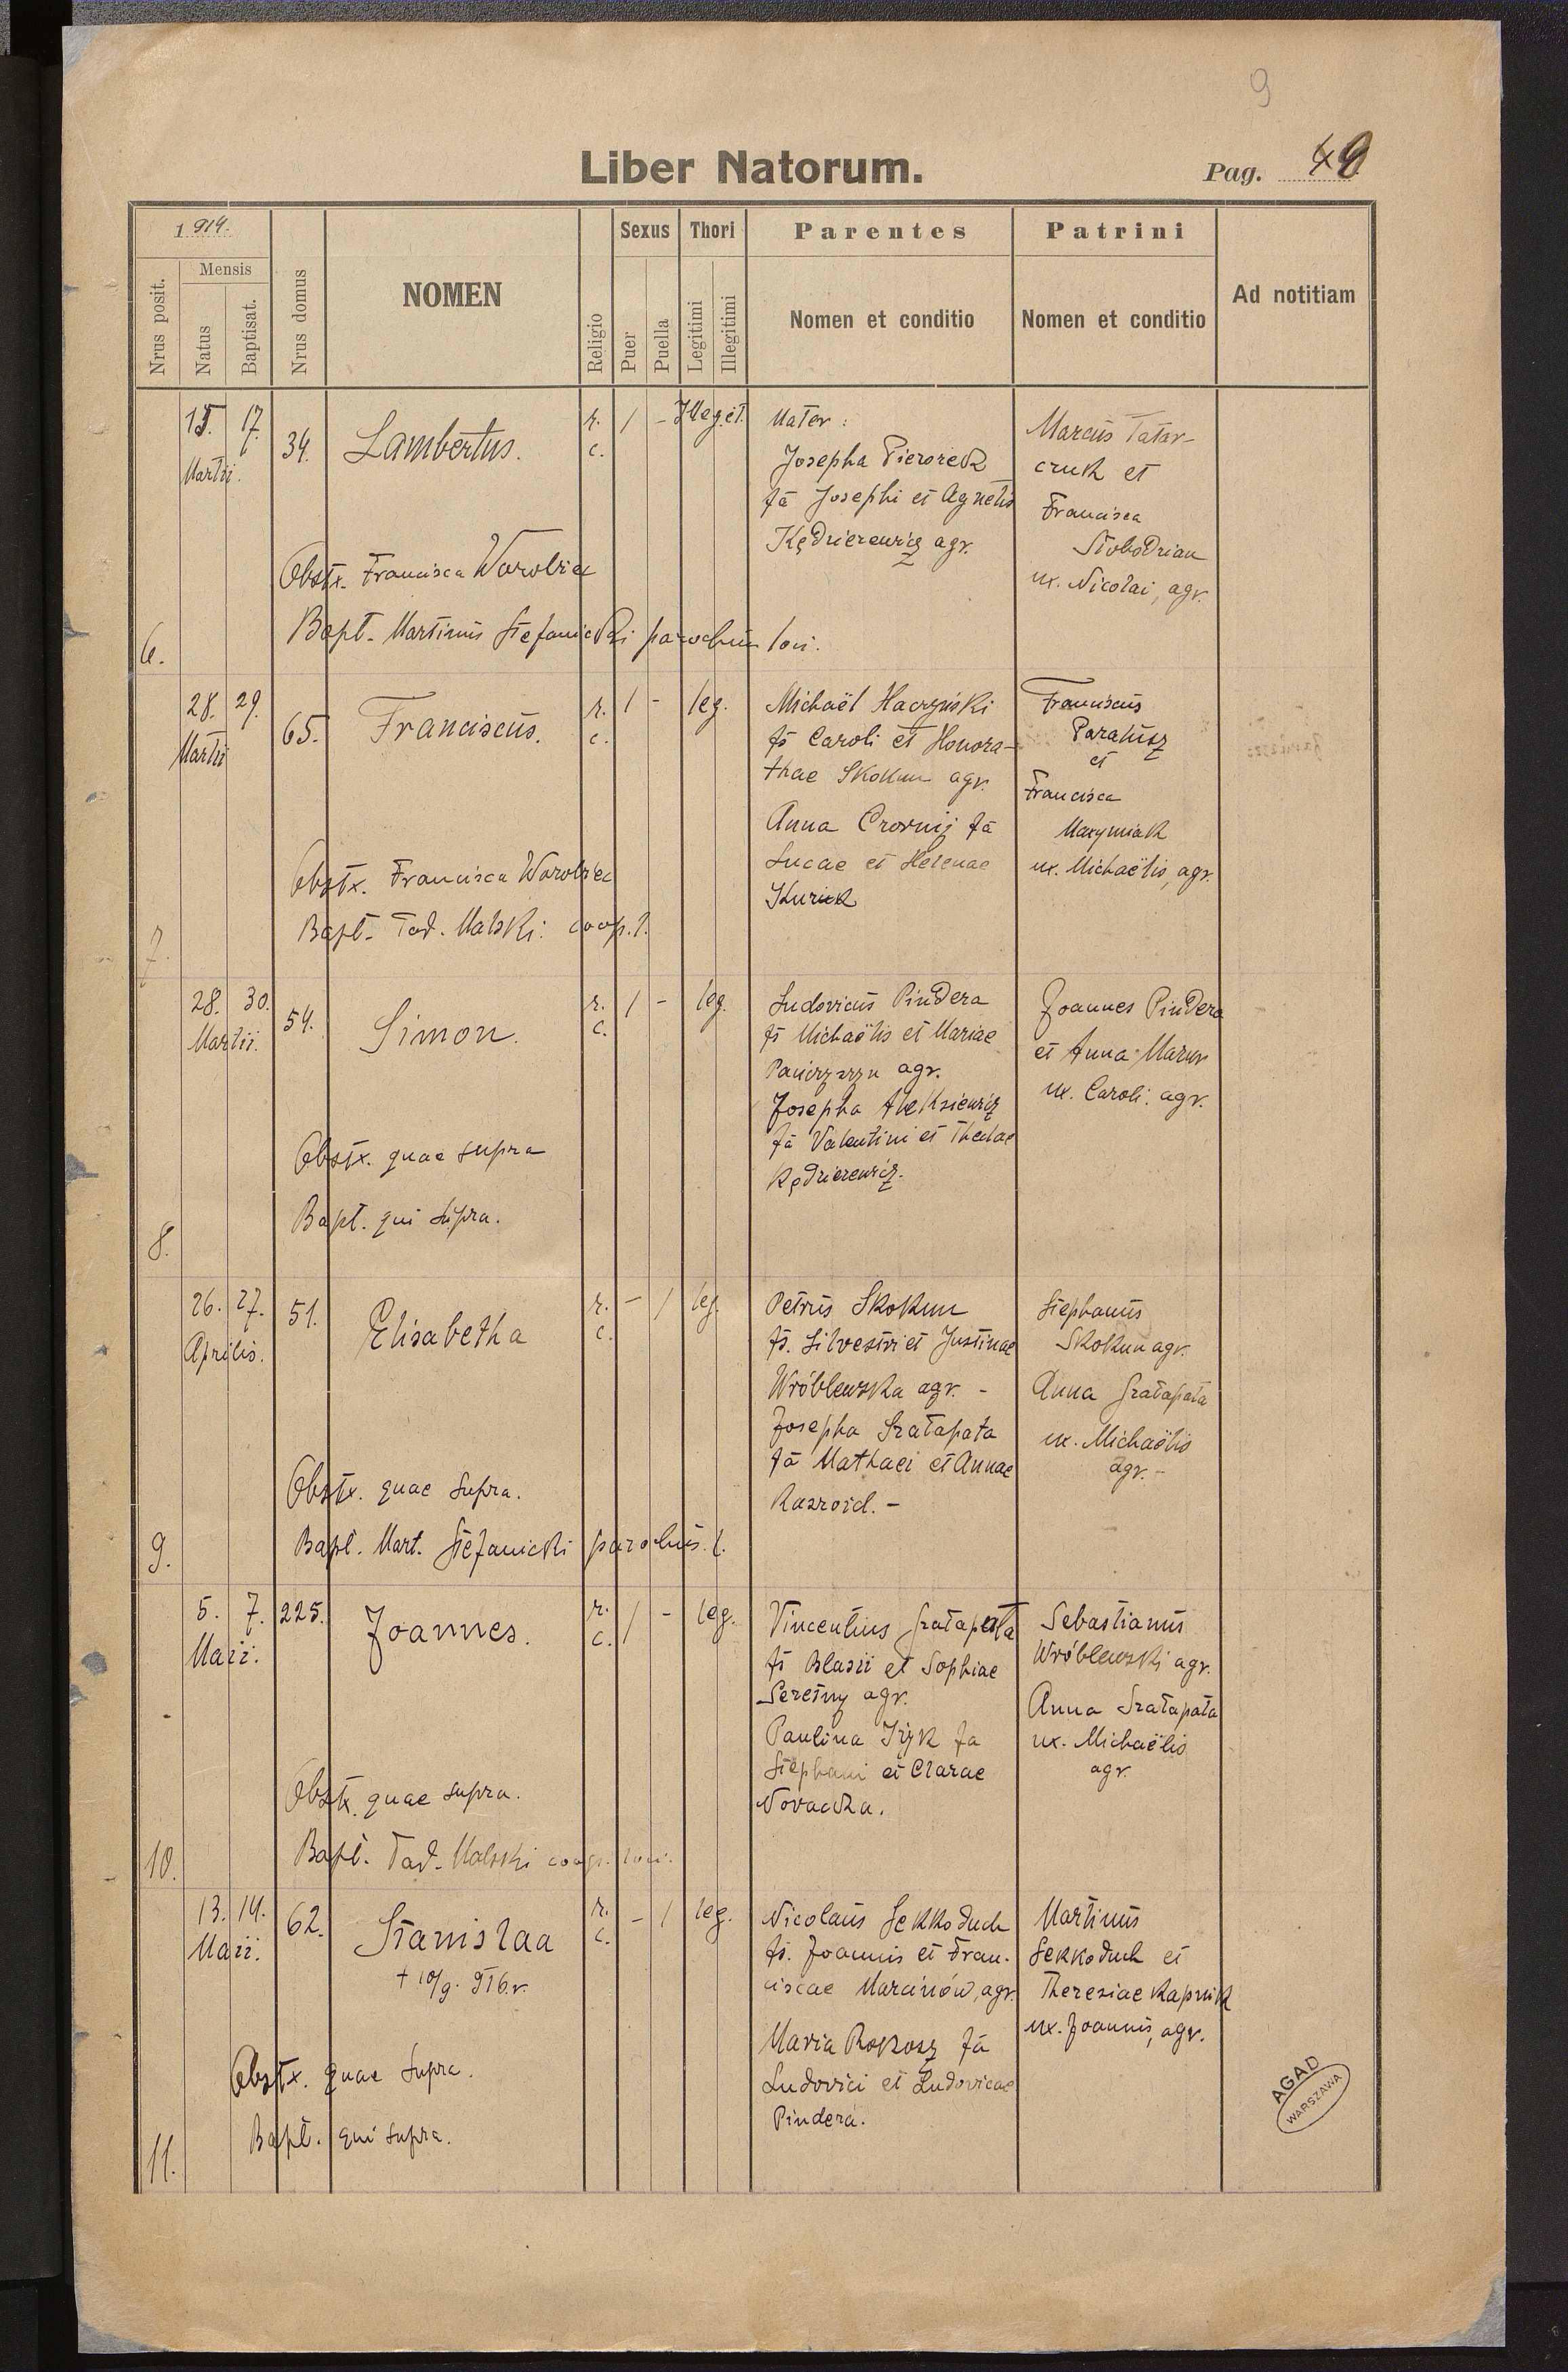 9
Liber Natorum.
Pag.
1914.
Mensis
Nrus posit.
Natus
Baptisat.
Nrus domus
NOMEN
Religio
Sexus
Puer
Puella
Thori
Legitimi
Illegitimi
Parentes
Nomen et conditio
Patrini
Nomen et conditio
Ad notitiam
6.
15. 17.
Martii.
34.
Lambertus.
r.
c.
/ - Illegit.
Mater:
Josepha
fa Josephi et Agnetis
Kędzierewicz agr.
Marcus Tatar-
czuk et
Francisca
Słobodzian
ux. Nicolai, agr.
Obstx. Francisca Worobiec
Bapt. Martinus Stefanicki parochus loci.
7.
28. 29.
Martii
65.
Franciscus.
r.
c.
/ - leg.
Michaël Haczyński
fs Caroli et Honora-
thae Skokun agr.
Anna fa
Lucae et Helenae
Franciscus
et
Francisca
Maxymiak
ux. Michaëlis, agr.
Obstx. Francisca Worobiec
Bapt. Tad. Malski coop. l.
8.
28. 30.
Martii.
54.
Simon.
r.
c.
/ - leg.
Ludovicus Pindera
fs Michaëlis et Mariae
agr.
Josepha Aleksiewicz
fa Valentini et Theclae
Kędzierewicz.
Joannes Pindera
et Anna Mazur
ux. Caroli. agr.
Obstx. quae supra
Bapt. qui supra.
9.
26. 27.
Aprilis.
51.
Elisabetha
r.
c.
- / leg.
Petrus Skokun
fs. Silvestri et Justinae
Wróblewska agr. -
Josepha Szałapata
fa Mathaei et Annae
Stephanus
Skokun agr.
Anna Szałapata
ux. Michaëlis
agr. -
Obstx. quae supra.
Bapt. Mart. Stefanicki parochus. l.
10.
5. 7.
Maii.
225.
Joannes.
r.
c.
/ - leg.
Vincentius Szałapata
fs Blasii et Sophiae
Seretny agr.
Paulina fa
Stephani et Clarae
Novacka.
Sebastianus
Wróblewski agr.
Anna Szałapata
ux. Michaëlis
agr.
Obstx. quae supra.
Bapt. Tad. Malski coop. loci.
11.
13. 14.
Maii.
62.
Stanislaa
+ 10/9. 916. r.
r.
c.
- / leg.
Nicolaus Sekkoduch
fs. Joannis et Fran-
ciscae Marcinów, agr.
Maria Rokosz fa
Ludovici et Ludovicae
Pindera.
Martinus
Sekkoduch et
Theresiae Kapnik
ux. Joannis, agr.
Obstx. quae supra.
Bapt. qui supra.
AGAD
WARSZAWA